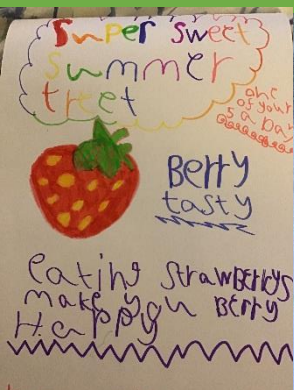 Super Sweet
Summer
treet
one
of your
5 a Day
Berry
tasty
Eating Strawberrys
make you Berry
Happy